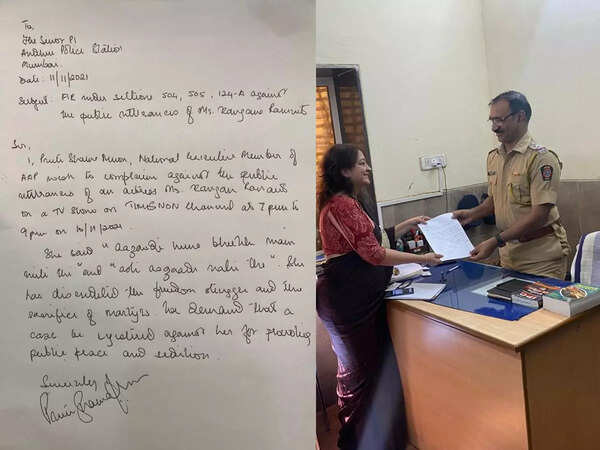 To,
The Senior PI
Andheri Police Station
Mumbai.
Date: 11/11/2021
Subject: FIR under sections 504, 505, 124-A against
the public utterances of Ms. Kangana Ranaut
Sir,
I, Preeti Sharma Menon, National Executive Member of
AAP wish to complain against the public
utterances of an actress Ms. Kangana Ranaut
on a TV show on TIMESNOW Channel at 7pm to
9pm on 10/11/2021
She said "Aazaadi nune bheekh main
mili thi" and "asli aazaadi nahi thi". She
has discredited the freedom struggle and the
sacrifice of martyrs. We demand that a
case be registered against her for provoking
public peace and sedition.
Sincerely